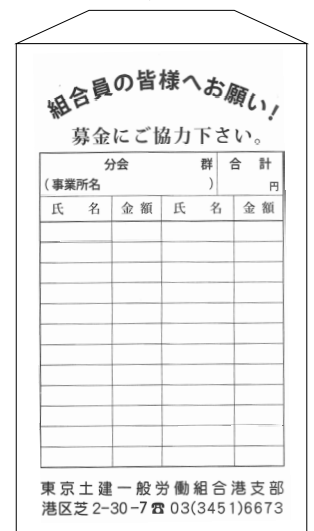 組合員の皆様へお願い!
募金にご協力下さい。
分会 群 合計
(事業所名 ) 円
氏名 金額 氏名 金額
東京土建一般労働組合港支部
港区芝2-30-7☎03(3451)6673